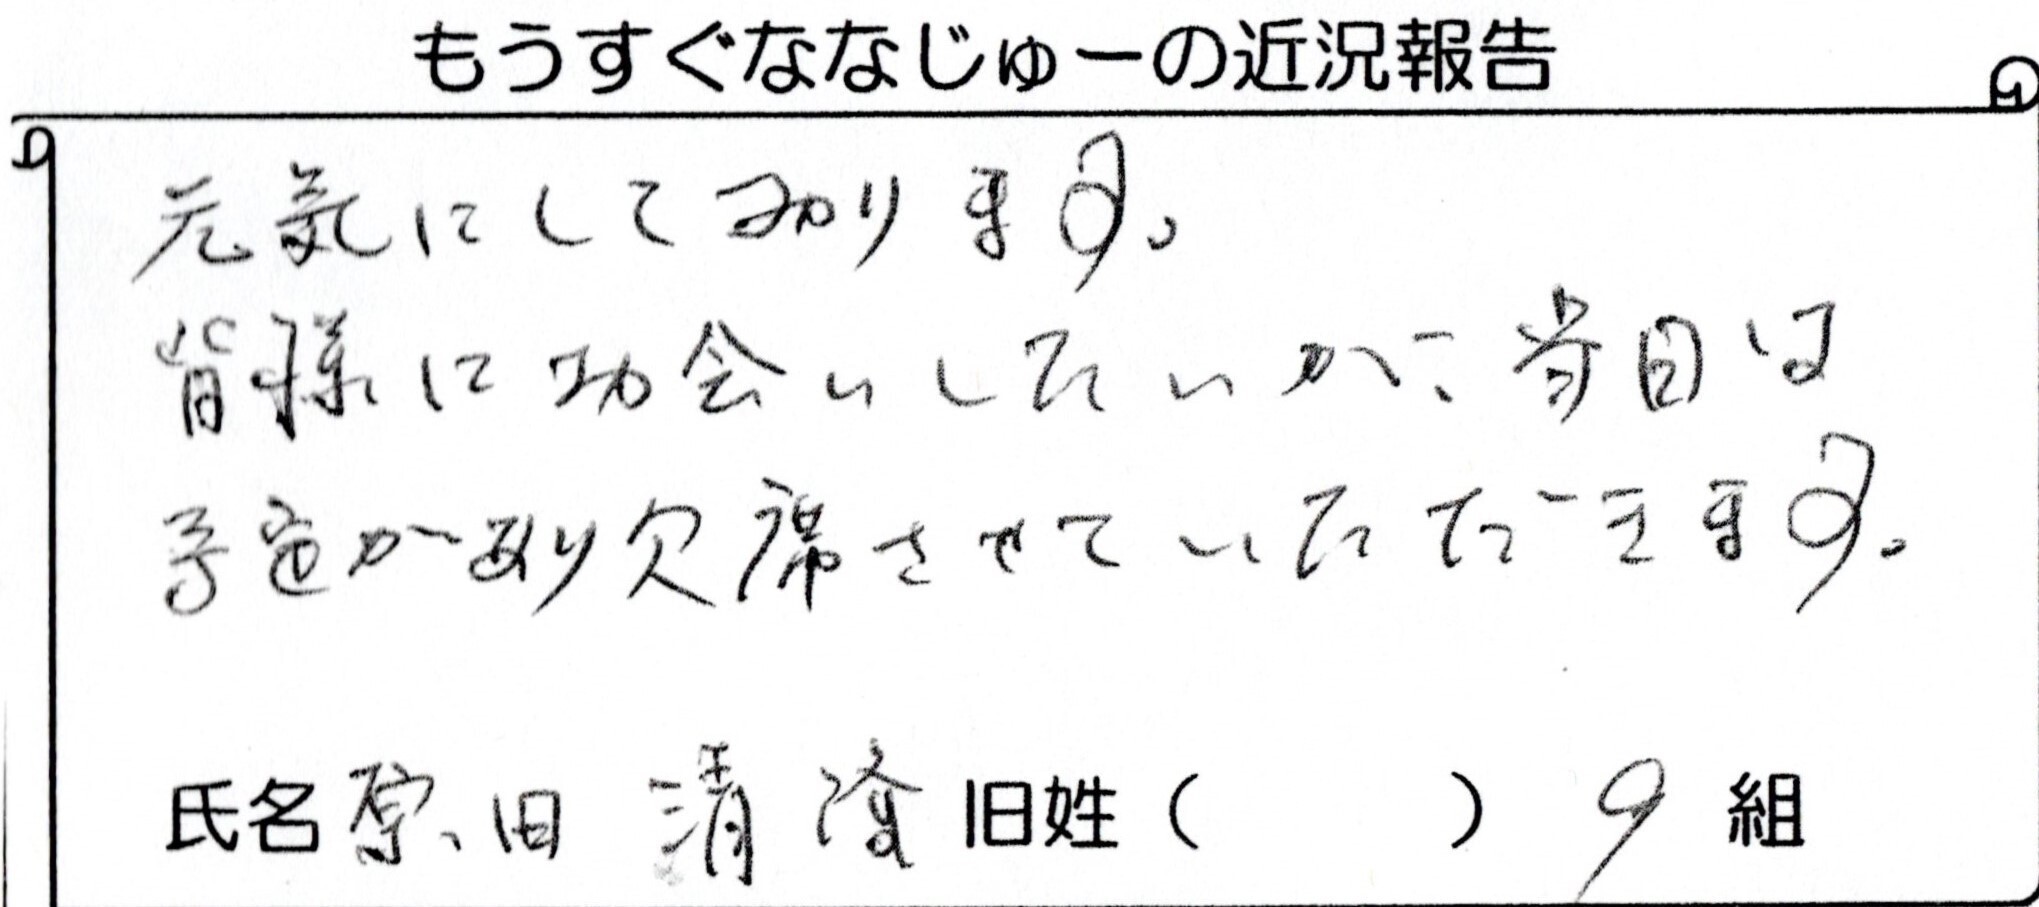 もうすぐななじゅーの近況報告
元気にしております。
皆様にお会いしたいが、当日は
予定があり欠席させていただきます。
氏名 原田 清澄 旧姓( ) 9 組